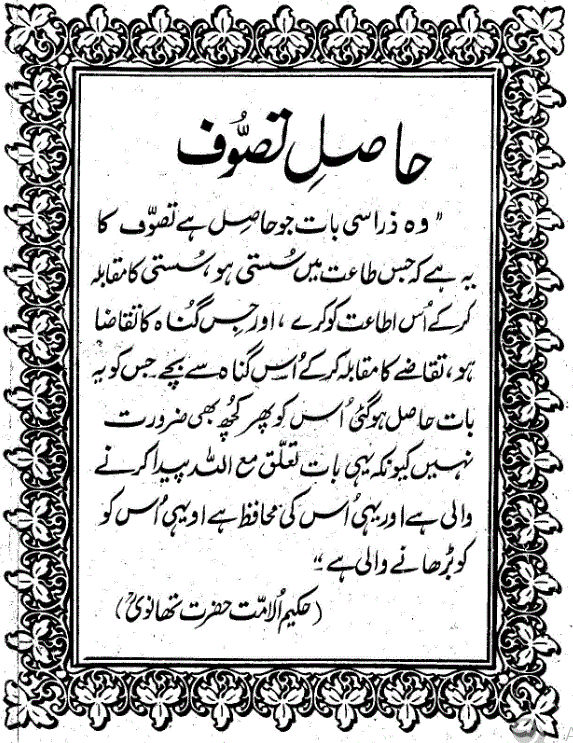 حاصلِ تصوُّف
"وہ ذراسی بات جو حاصِل ہے تصوّف کا
یہ ہے کہ جس طاعت میں سُستی ہو، سُستی کا مقابلہ
کرکے اُس اطاعت کو کرے، اور جِس گُناہ کا تقاضا
ہو، تقاضے کا مقابلہ کرکے اُس گناہ سے بچے جس کو یہ
بات حاصل ہوگئی اُس کو پھر کُچھ بھی ضرورت
نہیں کیونکہ یہی بات تعلّق مع اللہ پیدا کرنے
والی ہے اور یہی اُس کی محافظ ہے او یہی اُس کو
کو بڑھانے والی ہے"
(حکیم اُلامّت حضرت تھانویؒ)